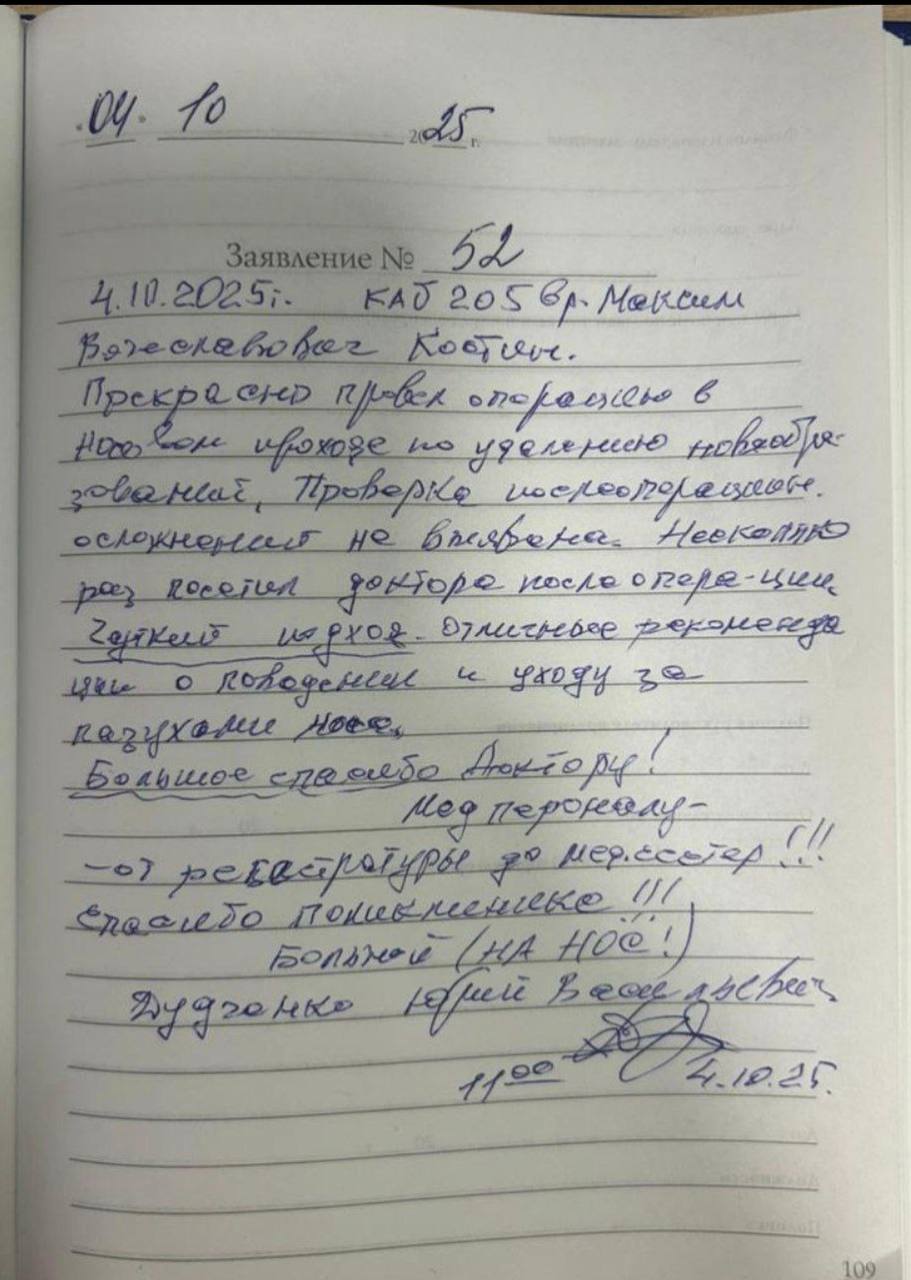 04. 10 2025 г.
Заявление № 52
4.10.2025г. КАБ 205 вр. Максим
Вячеславович Костин.
Прекрасно провел операцию в
носовом проходе по удалению новообра-
зований, Проверка послеоперацион.
осложнений не выявила. Несколько
раз посетил доктора после опера-ции
Чуткий подход. Отличные рекоменда
ции о поведении и уходу за
пазухами носа.
Большое спасибо Доктору!
Мед пероналу-
-от регистратуры до мед.сестер!!!
Спасибо Поликлинике!!!
Больной (НА НОС!)
Дудченко Юрий Васильевич
11 00 4.10.25.
109